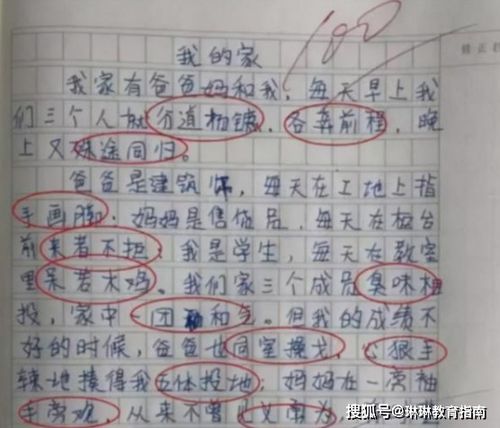 100
我的家
我家有爸爸妈和我，每天早上我
们三个人就分道扬镳，各奔前程，晚
上又殊途同归。
爸爸是建筑师，每天在工地上指
手画脚；妈妈是售货员，每天在柜台
前来者不拒；我是学生，每天在教室
里呆若木鸡。我们家三个成员臭味相
投，家中一团和气。但我的成绩不
好的时候，爸爸也同室操戈，心狠手
辣地揍得我五体投地；妈妈在一旁袖
手旁观，从来不曾见义勇为
搜狐号@琳琳教育指南